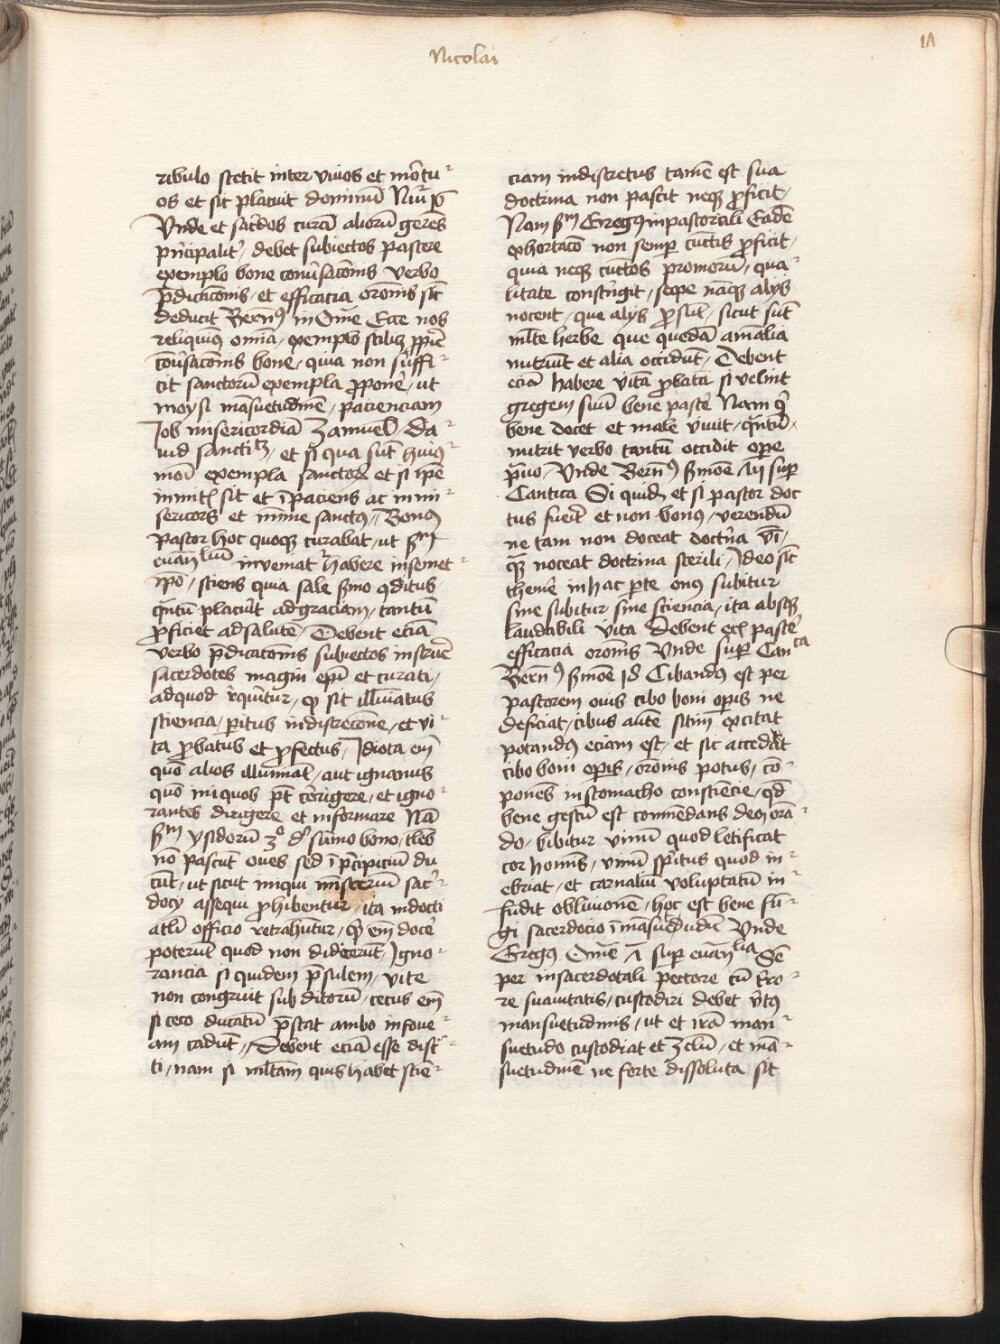 Nicolai
14
ribulo stetit inter viuos et mortu-
os et sic placuit dominum Nūi
Vnde et sacdos curā aliorū gerēs
pncipalit, debet subiectos pascere
exemplo bone conūsacōnis verbo
pdicacōnis, et efficacia orōnis sic
deducit Bernꝰ in Omē Ecce nos
reliquimus omīa, exemplo scilicz
cōūsacōnis bone, quia non suffi-
cit sanctorū exempla ppone, ut
moysi māsuetudinē, pacienciam
Iob misericordiā Samuel, Da-
uid sanctitz, et si qua sūt huiꝰ-
moi exempla sanctorꝝ et si ipe
inmitis sit et ipaciens ac inmi-
sericors et minime sanctus, Bonus
pastor hoc quoqꝫ curabat, ut
euanlium inveniat habere in semet-
ipo, sciens quia sale smo oditus
qntū placuit ad graciam, tantū
pficiet ad salutē, Debent eciā
verbo pdicacōnis subiectos instrue
sacerdotes magni epi et curati,
ad quod requiritur, ꝙ sit illuiatus
sciencia, pitus in discrecone, et vi-
ta pbatus et pfectus, Idiota em̄
quō alios illuminat, aut ignauus
quō iniquos pt corrigere, et igno-
rantes dirigere et informare Nā
sm ysidorū 3º de sūmo bono,
nō pascūt oues sed ī pcipiciū du
cūt, ut sicut iniqui misteriū sacr-
docij assequi phibentur, ita indocti
officio retrahūtur, em doce
poterūt quod non didicerūt, Igno-
rancia si quidem psulem, vite
non congruit subditorū, cecus em̄
si ceco ducatū pstat ambo in foue-
am cadūt, Debent eciā esse discr-
ti, nam si multam quis habet scie-
ciam indiscretus tamē est sua
doctrina non pascit neqꝫ pficit,
Nam sm Gregꝰ in pastorali Eadē
exhortacō non semp cūctis pficit,
quia neqꝫ cūctos par morum, qua-
litate constringit, sepe nāqꝫ alijs
nocent, que alijs psūt, sicut sūt
mlte herbe que quedā aīmalia
nutriūt et alia occidūt, Debent
eciā habere vitā pbatā si velint
gregem suū bene pasce Nam qi
bene docet et male viuit, qntū
nutrit verbo tantū occidit ope
pauo, Vnde Bernꝰ smone sup
Cantica Si quidē et si pastor doc
tus fuerit et non bonus, verendū
ne tam non doceat doctrina
qꝫ noceat doctrina sterili, Ideo sic
themere in hac parte onus subitur
sine subitur sine sciencia, ita absqꝫ
laudabili vita Debent eciā pasce
efficacia orōnis Vnde sup Canta
Bernꝰ Smone Cibandus est per
pastorem ouis cibo boni opis ne
deficiat, cibus autē sitim excitat
potandus eciam est, et sic accedat
cibo boni opis, orōnis potus, cō-
ponēs in stomacho consciēcie, qd
bene gestū est cōmendans deo orā
do, bibitur vinū quod letificat
cor hominis, vinū spiritus quod in-
ebriat, et carnaliū voluptatū in-
fudit obliuionē, hoc est bene fu-
gi sacerdocio ī māsuetudine Vnde
Gregꝰ Omē sup euālia Sē
per in sacerdotali pectore cū terro-
re suauitatis, custodiri debet virtus
mansuetudinis, ut et irā man-
suetudo custodiat et zelū, et mā-
suetudinē ne forte dissoluta sit